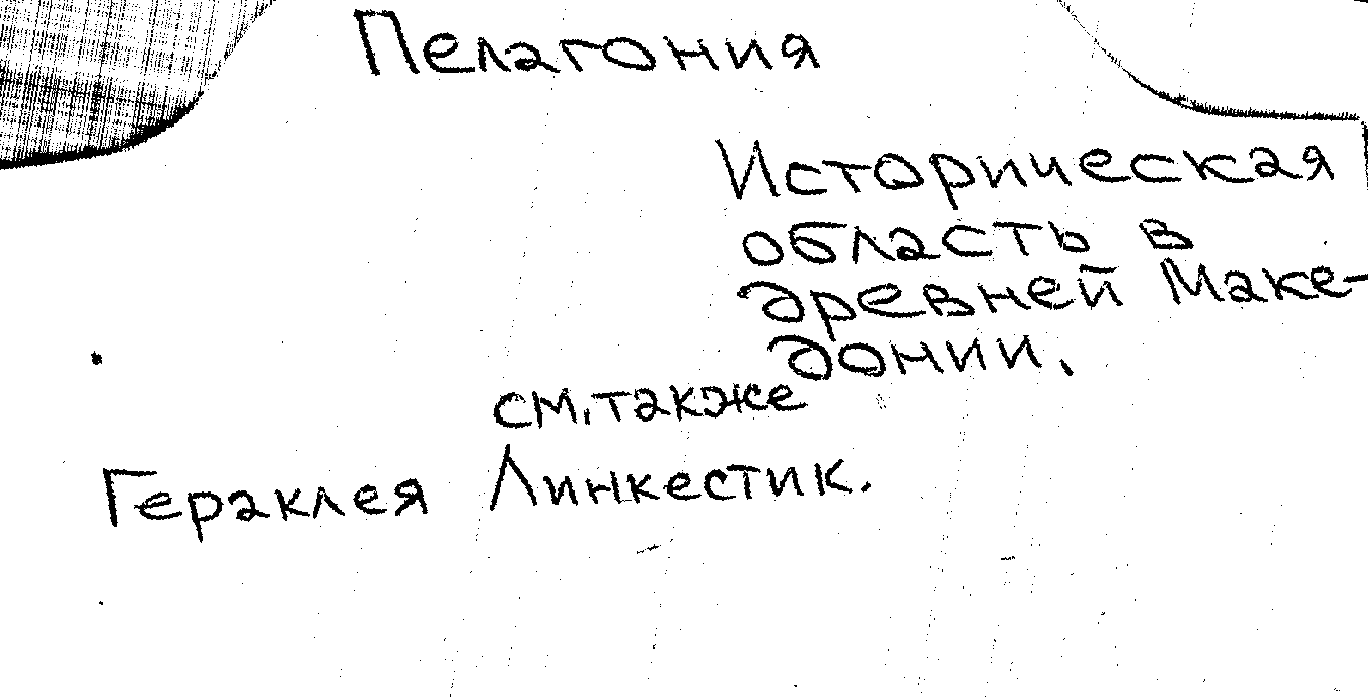 Пелагония
Историческая
область в
древней Маке-
донии.
см. также
Гераклея Линкестик.